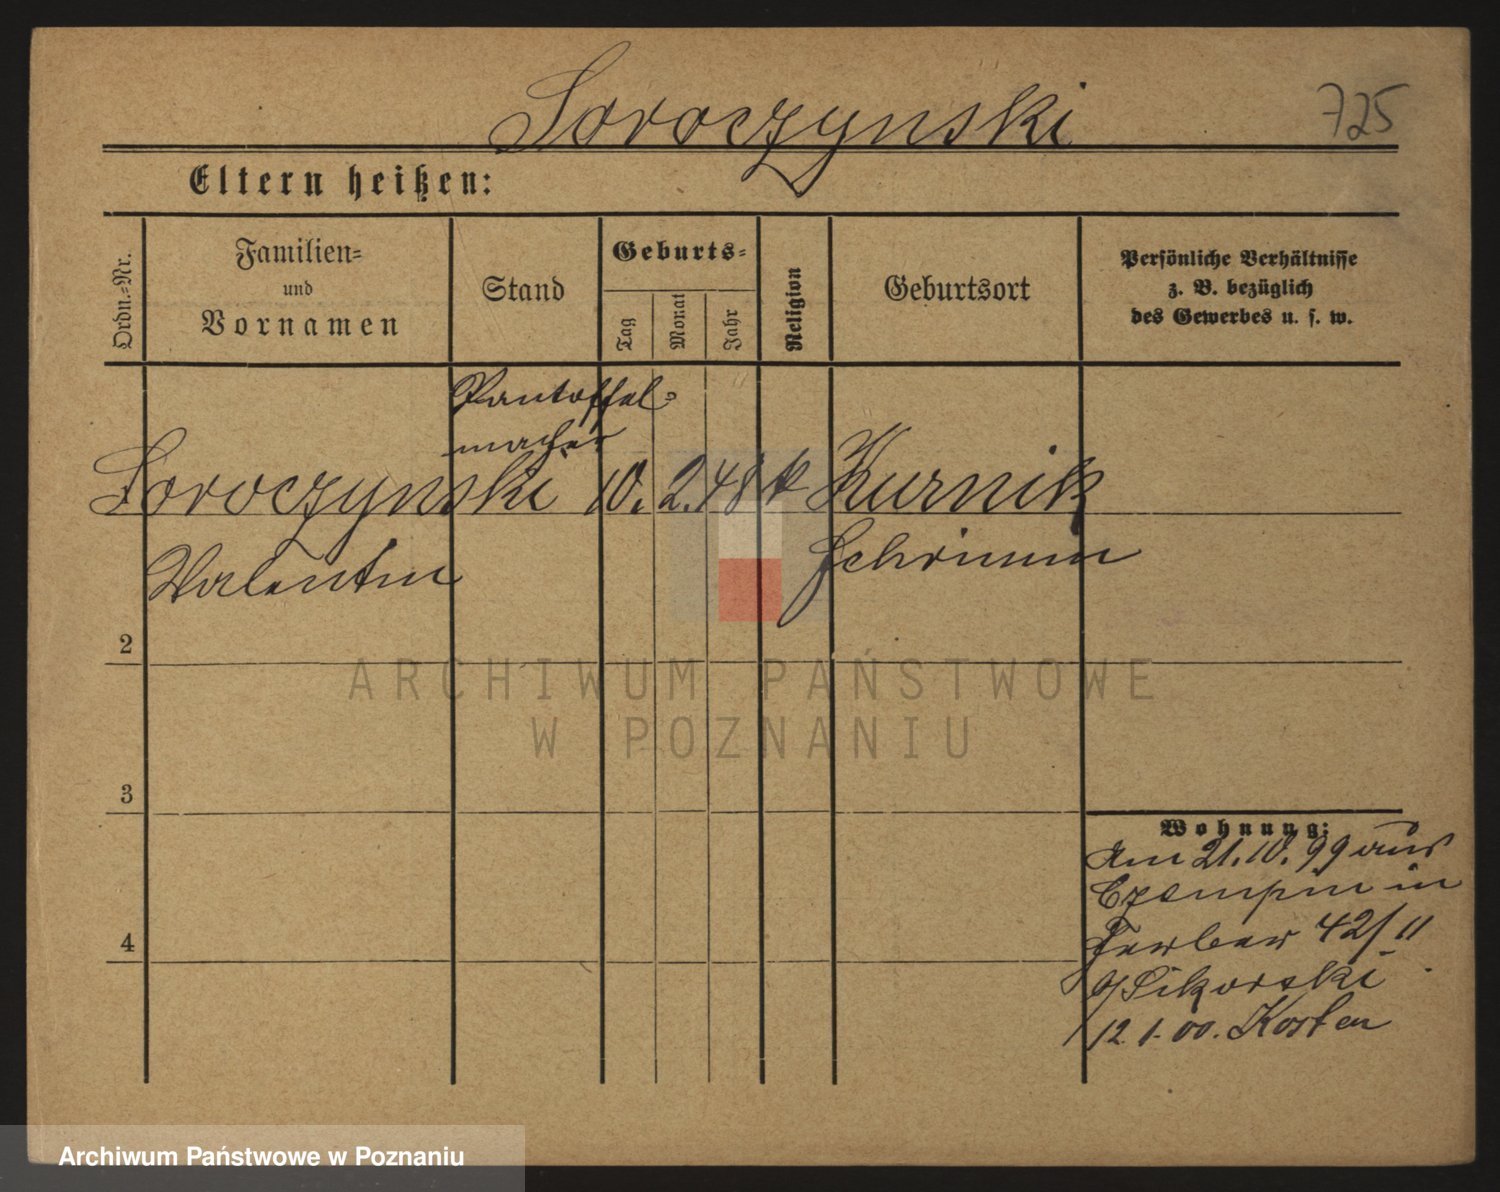 Soroczynski
725
Eltern heißen:
Ordn.-Nr.
Familien-
und
Vornamen
Stand
Geburts-
Tag
Monat
Jahr
Religion
Geburtsort
Persönliche Verhältnisse
z. B. bezüglich
des Gewerbes u. s. w.
Pantoffel-
macher
Soroczynski 10. 2. 48 k Kurnik
Valentin Schrimm
2
3
4
Wohnung:
Am 21.10.99 aus
Czempin in
Ferber 42/11
b/Sikorski
12.1.00. Kosten
ARCHIWUM PAŃSTWOWE
W POZNANIU
Archiwum Państwowe w Poznaniu